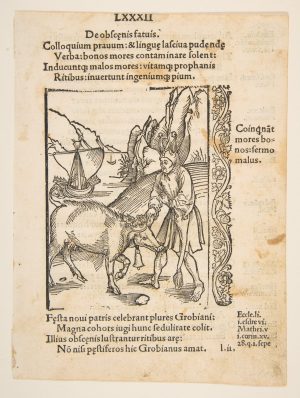 LXXXII
De obscęnis fatuis.
Colloquium prauum: & linguę lasciua pudendę
Verba: bonos mores contaminare solent:
Inducuntq; malos mores: vitamq; prophanis
Ritibus: inuertunt ingeniumq; pium.
Coinq̄nāt
mores bo-
nos: sermo
malus.
Fęsta noui patris celebrant plures Grobiani:
Magna cohors iugi hunc sedulitate colit.
Illius obscęnis lustrantur ritibus arę:
Nō nisi pęstiferos hic Grobianus amat.
Eccle. li.
i. esdre vi.
Mathei. v
i. corin. xv.
28. q. i. sepe
l. ii.